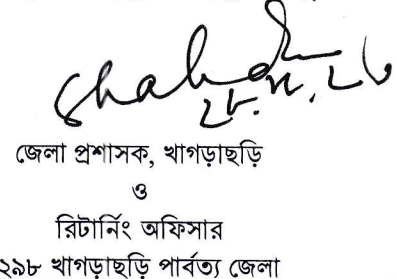 জেলা প্রশাসক, খাগড়াছড়ি
ও
রিটার্নিং অফিসার
২৯৮ খাগড়াছড়ি পার্বত্য জেলা